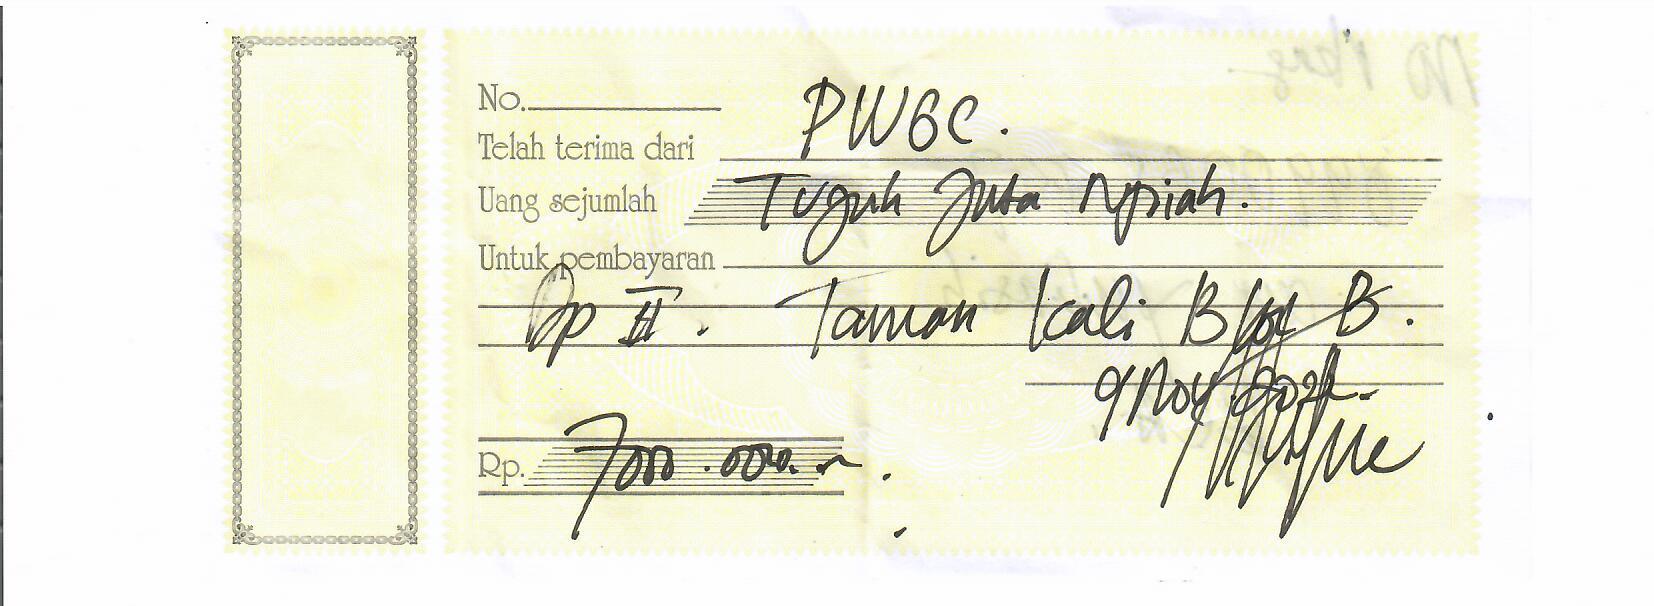 No.
PWGC.
Telah terima dari
Uang sejumlah Tujuh Juta Rupiah.
Untuk pembayaran
Dp II. Taman Kali Blok B.
9 Nov
Rp. 7000.000.-